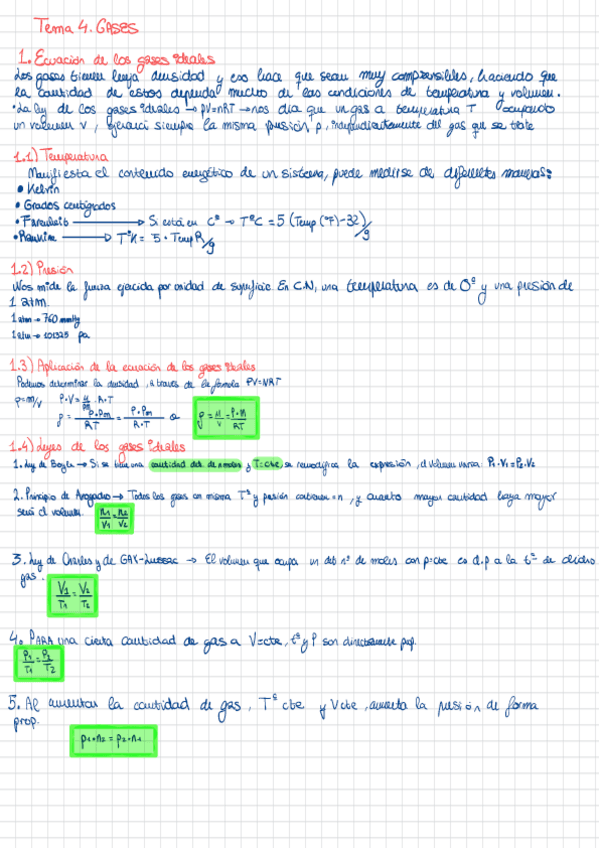 Tema 4. GASES
1. Ecuación de los gases ideales
Los gases tienen baja densidad y eso hace que sean muy compresibles, haciendo que
la cantidad de estos dependa mucho de las condiciones de temperatura y volumen.
• La ley de los gases ideales → pV=nRT → nos dia que un gas a temperatura T ocupando
un volumen v, ejercerá siempre la misma presión p, independientemente del gas que se trate
1.1) Temperatura
Manifiesta el contenido energético de un sistema, puede medirse de diferentes maneras:
• Kelvin
• Grados centígrados
• Farenheit → Si está en Cº → TºC = 5 (Temp (ºF)-32)/9
• Rankine → TºK = 5 · Temp R/9
1.2) Presión
Nos mide la fuerza ejercida por unidad de superficie. En C.N, una temperatura es de 0º y una presión de
1 atm.
1 atm → 760 mmHg
1 atm → 101325 pa
1.3) Aplicación de la ecuación de los gases ideales
Podemos determinar la densidad, a través de la fórmula PV=NRT
ρ=m/V P·V = M/PM · R·T
ρ = P·Pm/RT = P·Pm/R·T ρ = M/V = P·M/RT
1.4) Leyes de los gases ideales
1. Ley de Boyle → Si se tiene una cantidad det. de n moles y T=cte, se remodifica la expresión, el volumen varia: P1·V1=P2·V2
2. Principio de Avogadro → Todos los gases con misma Tº y presión contienen = n, y cuanto mayor cantidad haya mayor
será el volumen. n1/V1 = n2/V2
3. Ley de Charles y de GAY-Lussac → El volumen que ocupa un det nº de moles con p=cte es d.p a la tº de dicho
gas. V1/T1 = V2/T2
4. PARA una cierta cantidad de gas a V=cte, tº y P son directamente prop.
P1/T1 = P2/T2
5. Al aumentar la cantidad de gas, Tº cte y V cte, aumenta la presión de forma
prop.
p1·n2 = p2·n1